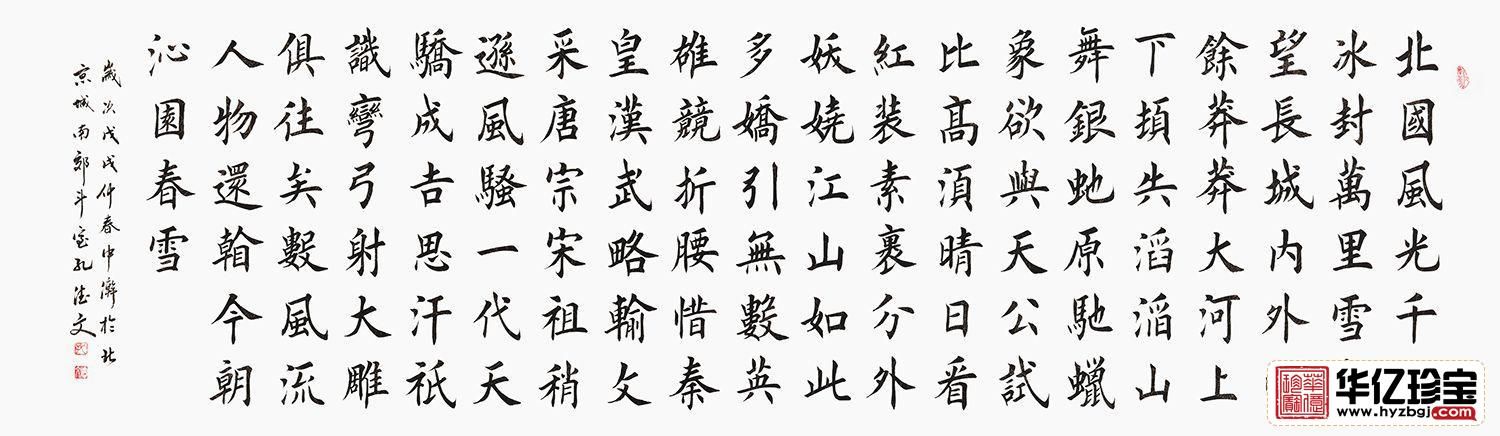 北國風光千
冰封萬里雪
望長城内外
餘莽莽大河上
下頓失滔滔山
舞銀虵原馳蠟
象欲與天公試
比髙須晴日看
紅裝素裹分外
妖嬈江山如此
多嬌引無數英
雄競折腰惜秦
皇漢武略輸文
采唐宗宋祖稍
遜風騷一代天
驕成吉思汗祇
識彎弓射大雕
俱往矣數風流
人物還看今朝
沁園春雪
歲次戊戌仲春中澣於北
京城南郭斗室孔德文
华亿珍宝
www.hyzbgj.com